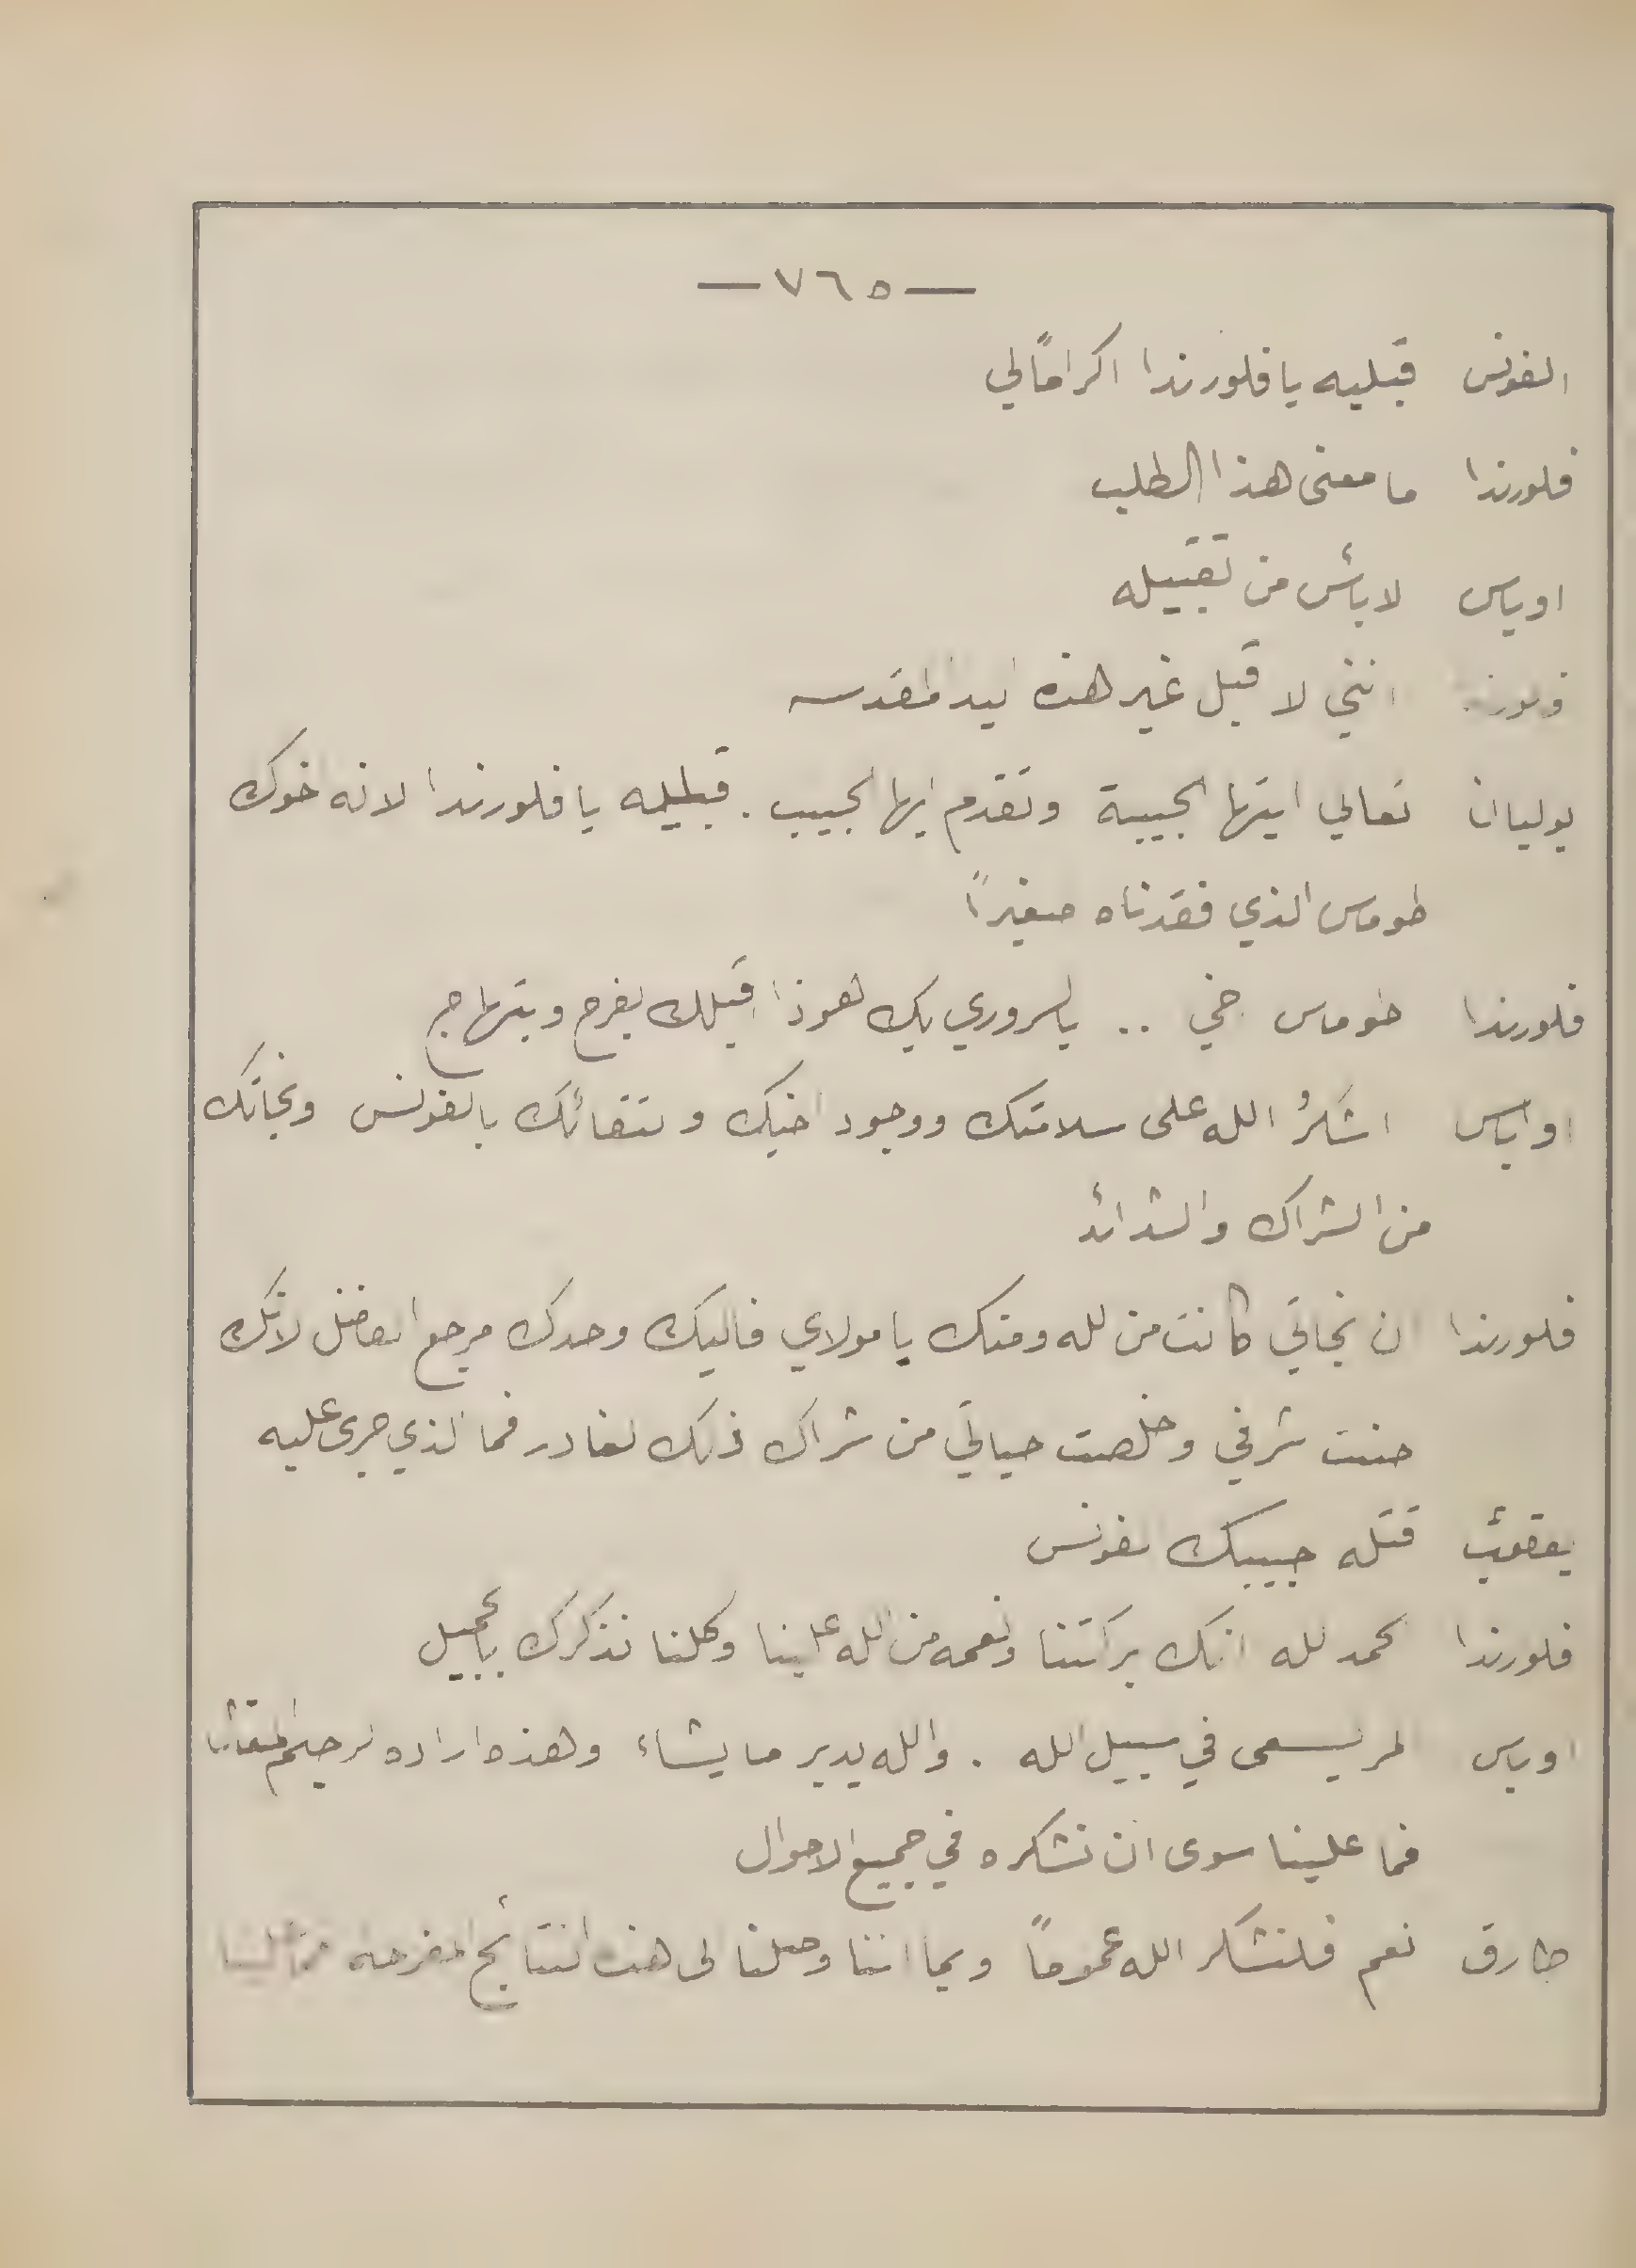 — ٧٦٥ —
الفونس قبليه يا فلورندا اكراماً لي
فلورندا ما معنى هذا الطلب
اوباس لا بأس من تقبيله
فلورندا انني لا قبل غير هذه اليد المقدسه
يوليان تعالي ايتها الحبيبة وتقدم ايها الحبيب . قبليه يا فلورندا لانه خوك
طوماس الذي فقدناه صغيراً
فلورندا طوماس خي .. يالسروري بك هوذا اقبلك بفرح وبتهاج
اوباس اشكرُ الله على سلامتك ووجود اخيك ولتقائك بالفونس ونجاتك
من الشراك والشدائد
فلورندا ان نجاتي كانت من لله ومنك يا مولاي فاليك وحدك مرجع الفضل لانك
صنت شرفي وخلصت حياتي من شراك ذلك لغادر فما الذي جرى عليه
يعقوب قتله حبيبك الفونس
فلورندا الحمد لله انك بركتنا ونعمه من الله علينا وكلنا نذكرك بالجميل
اوباس المر يسعى في سبيل الله . والله يدبر ما يشاء وهذه اراده
فما علينا سوى ان نشكره في جميع الاحوال
طارق نعم فلنشكر الله عموماً وبما اننا وصلنا لى هذه النتائج المفرحه